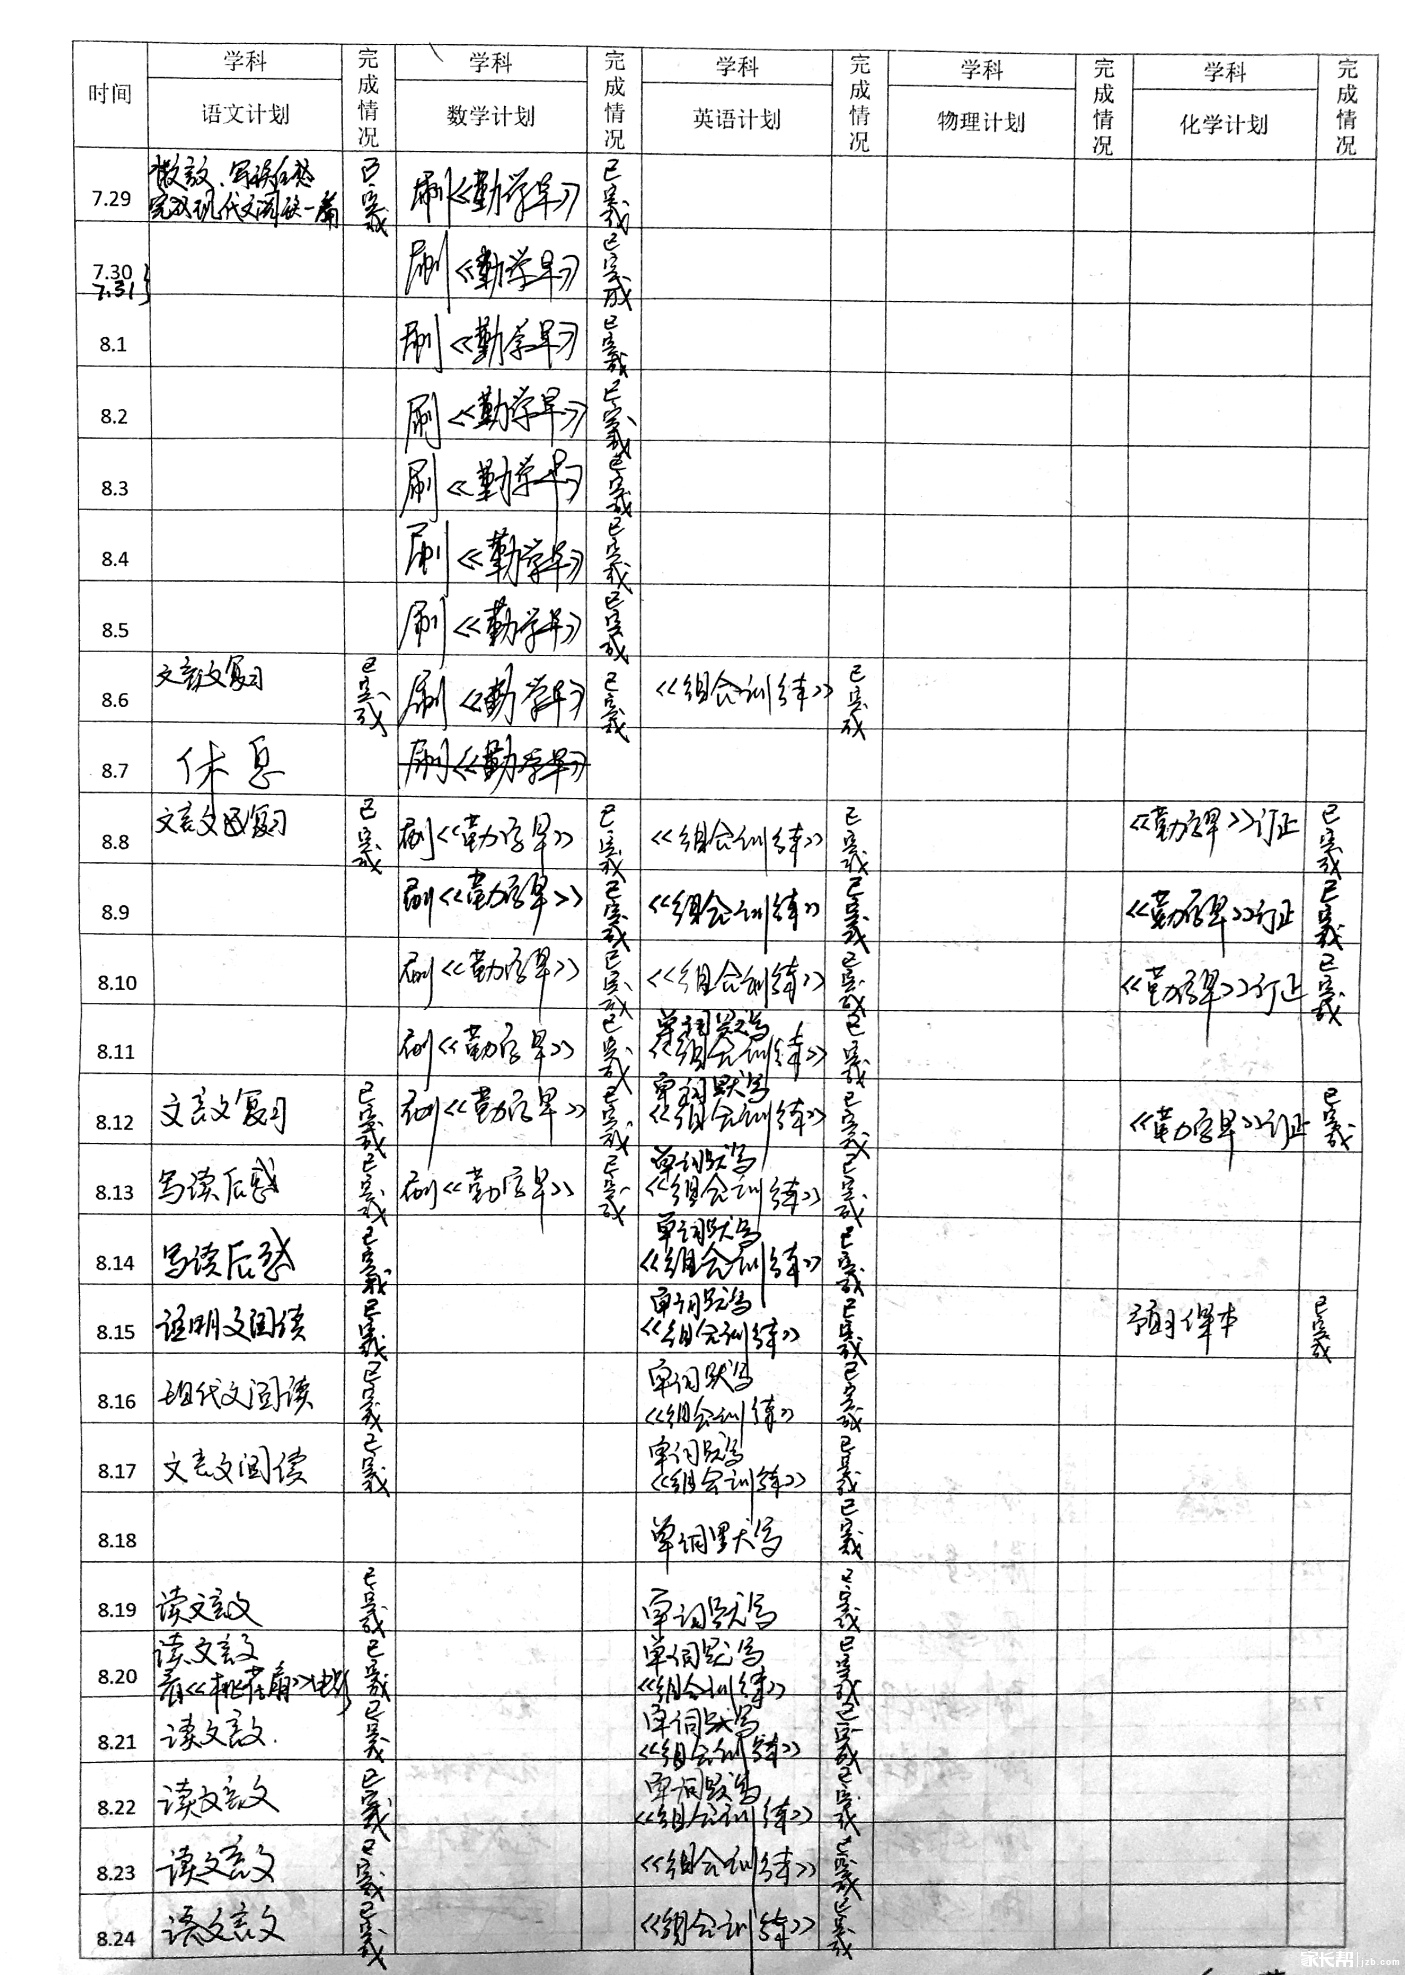 时间 学科 完成情况 学科 完成情况 学科 完成情况 学科 完成情况 学科 完成情况
语文计划 数学计划 英语计划 物理计划 化学计划
7.29 写读后感 已完成 刷《勤学早》 已完成
完成现代文阅读一篇
7.30 刷《勤学早》 已完成
7.31
8.1 刷《勤学早》 已完成
8.2 刷《勤学早》 已完成
8.3 刷《勤学早》 已完成
8.4 刷《勤学早》 已完成
8.5 刷《勤学早》 已完成
8.6 文言文复习 已完成 刷《勤学早》 已完成 《组合训练》 已完成
8.7 休息 刷《勤学早》
8.8 文言文复习 已完成 刷《勤学早》 已完成 《组合训练》 已完成 《勤学早》订正 已完成
8.9 刷《勤学早》 已完成 《组合训练》 已完成 《勤学早》订正 已完成
8.10 刷《勤学早》 已完成 《组合训练》 已完成 《勤学早》订正 已完成
8.11 刷《勤学早》 已完成 单词默写 已完成
《组合训练》
8.12 文言文复习 已完成 刷《勤学早》 已完成 单词默写 已完成 《勤学早》订正 已完成
《组合训练》
8.13 写读后感 已完成 刷《勤学早》 已完成 单词默写 已完成
《组合训练》
8.14 写读后感 已完成 单词默写 已完成
《组合训练》
8.15 说明文阅读 已完成 单词默写 已完成 预习课本 已完成
《组合训练》
8.16 现代文阅读 已完成 单词默写 已完成
《组合训练》
8.17 文言文阅读 已完成 单词默写 已完成
《组合训练》
8.18 单词默写 已完成
8.19 读文言文 已完成 单词默写 已完成
8.20 读文言文 已完成 单词默写 已完成
看《桃花扇》电影 《组合训练》
8.21 读文言文. 已完成 单词默写 已完成
《组合训练》
8.22 读文言文 已完成 单词默写 已完成
《组合训练》
8.23 读文言文 已完成 《组合训练》 已完成
8.24 读文言文 已完成 《组合训练》 已完成
家长帮 jzb.com